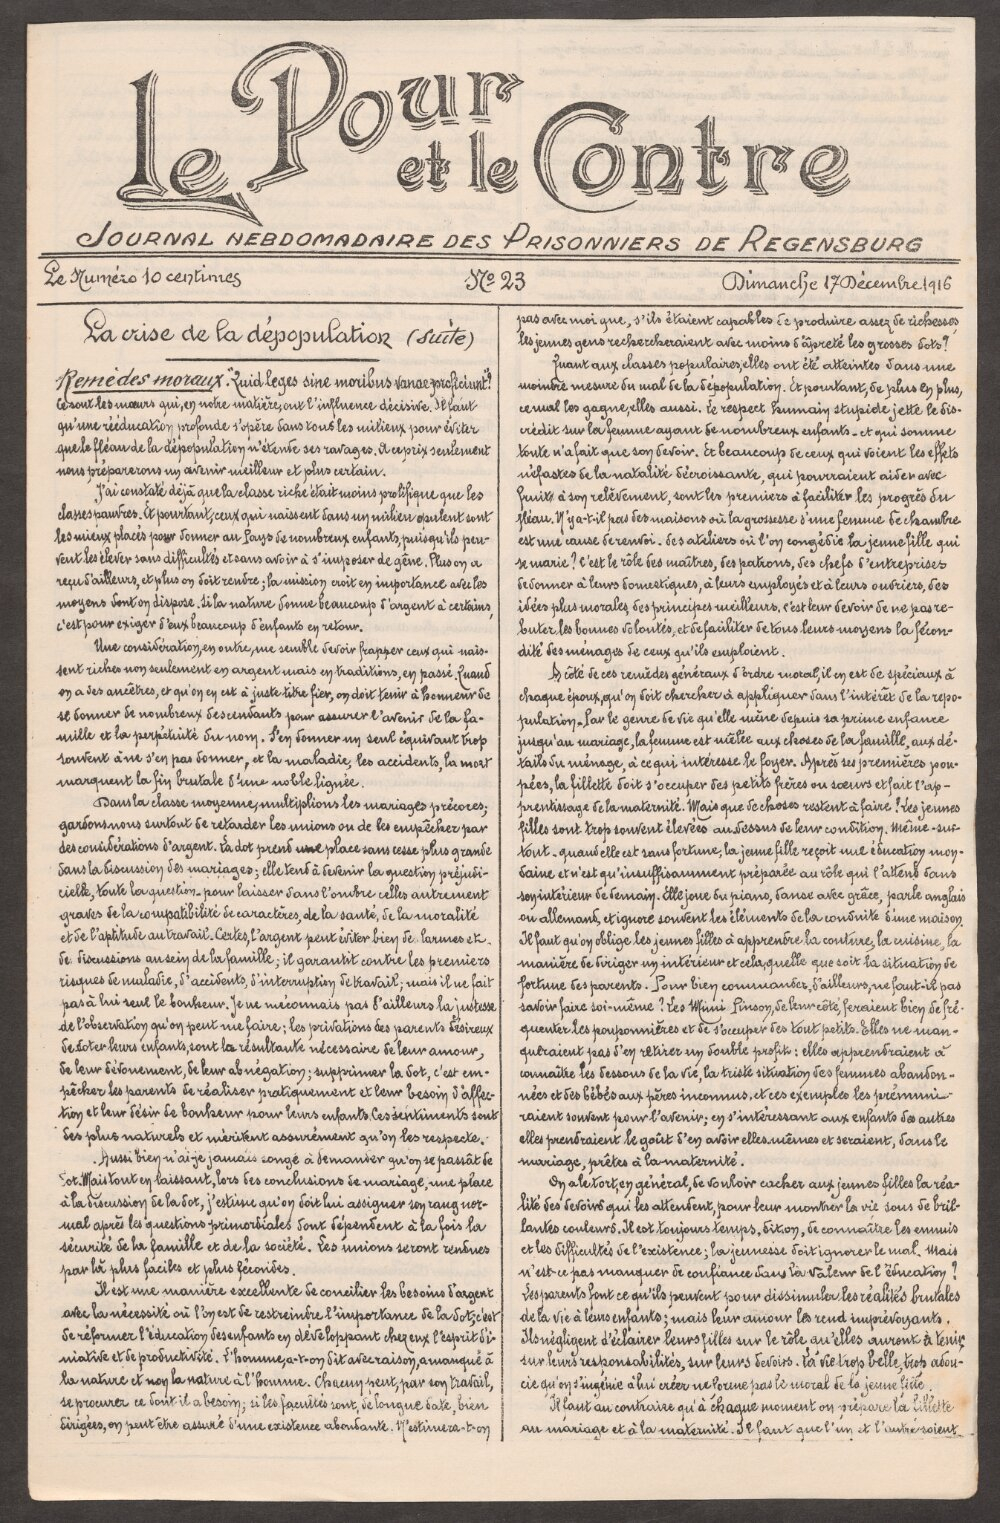 Le Pour et le Contre
Journal hebdomadaire des Prisonniers de Regensburg
Le Numéro 10 centimes
No 23
Dimanche 17 Décembre 1916
La crise de la dépopulation (suite)
Remèdes moraux. "Quid leges sine moribus vanae proficiunt"?
Ce sont les mœurs qui, en notre matière, ont l'influence décisive. Il faut
qu'une rééducation profonde s'opère dans tous les milieux pour éviter
que le fléau de la dépopulation n'étende ses ravages. A ce prix seulement
nous préparerons un avenir meilleur et plus certain.
J'ai constaté déjà que la classe riche était moins prolifique que les
classes pauvres. Et pourtant, ceux qui naissent dans un milieu opulent sont
les mieux placés pour donner au Pays de nombreux enfants, puisqu'ils peu-
vent les élever sans difficultés et sans avoir à s'imposer de gêne. Plus on a
reçu d'ailleurs, et plus on doit rendre; la mission croit en importance avec les
moyens dont on dispose. Si la nature donne beaucoup d'argent à certains,
c'est pour exiger d'eux beaucoup d'enfants en retour.
Une considération, en outre, me semble devoir frapper ceux qui nais-
sent riches non seulement en argent mais en traditions, en passé. Quand
on a des ancêtres, et qu'on en est à juste titre fier, on doit tenir à honneur de
se donner de nombreux descendants pour assurer l'avenir de la fa-
mille et la perpétuité du nom. S'en donner un seul équivaut trop
souvent à ne s'en pas donner, et la maladie, les accidents, la mort
marquent la fin brutale d'une noble lignée.
Dans la classe moyenne, multiplions les mariages précoces;
gardons-nous surtout de retarder les unions ou de les empêcher par
des considérations d'argent. La dot prend une place sans cesse plus grande
dans la discussion des mariages; elle tend à devenir la question préjudi-
cielle, toute la question - pour laisser dans l'ombre celles autrement
graves de la compatibilité de caractères, de la santé, de la moralité
et de l'aptitude au travail. Certes, l'argent peut éviter bien de larmes et
de discussions au sein de la famille; il garantit contre les premiers
risques de maladie, d'accidents, d'interruption de travail; mais il ne fait
pas à lui seul le bonheur. Je ne méconnais pas d'ailleurs la justesse
de l'observation qu'on peut me faire; les privations des parents désireux
de doter leurs enfants, sont la résultante nécessaire de leur amour,
de leur dévouement, de leur abnégation; supprimer la dot, c'est em-
pêcher les parents de réaliser pratiquement et leur besoin d'affec-
tion et leur désir de bonheur pour leurs enfants. Ces sentiments sont
des plus naturels et méritent assurément qu'on les respecte.
Aussi bien n'ai-je jamais songé à demander qu'on se passât de
dot. Mais tout en laissant, lors des conclusions de mariage, une place
à la discussion de la dot, j'estime qu'on doit lui assigner son rang nor-
mal après les questions primordiales dont dépendent à la fois la
sécurité de la famille et de la société. Les unions seront rendues
par là plus faciles et plus fécondes.
Il est une manière excellente de concilier les besoins d'argent
avec la nécessité où l'on est de restreindre l'importance de la dot, c'est
de réformer l'éducation des enfants en développant chez eux l'esprit d'i-
niative et de productivité. L'homme, a-t-on dit avec raison, a manqué à
la nature et non la nature à l'homme. Chacun peut, par son travail,
se procurer ce dont il a besoin; si les facultés sont, de longue date, bien
dirigées, on peut être assuré d'une existence abondante. N'estimera-t-on
pas avec moi que, s'ils étaient capables de produire assez de richesses,
les jeunes gens rechercheraient avec moins d'âpreté les grosses dots?
Quant aux classes populaires, elles ont été atteintes dans une
moindre mesure du mal de la dépopulation. Et pourtant, de plus en plus,
ce mal les gagne, elles aussi. Le respect humain stupide jette le dis-
crédit sur la femme ayant de nombreux enfants - et qui somme
toute n'a fait que son devoir. Et beaucoup de ceux qui voient les effets
néfastes de la natalité décroissante, qui pourraient aider avec
fruits à son relèvement, sont les premiers à faciliter les progrès du
fléau. N'y a-t-il pas des maisons où la grossesse d'une femme de chambre
est une cause de renvoi - des ateliers où l'on congédie la jeune fille qui
se marie? C'est le rôle des maîtres, des patrons, des chefs d'entreprises
de donner à leurs domestiques, à leurs employés et à leurs ouvriers, des
idées plus morales, des principes meilleurs. C'est leur devoir de ne pas re-
buter les bonnes volontés, et de faciliter de tous leurs moyens la fécon-
dité des ménages de ceux qu'ils emploient.
A côté de ces remèdes généraux d'ordre moral, il en est de spéciaux à
chaque époux, qu'on doit chercher à appliquer dans l'intérêt de la repo-
pulation. Par le genre de vie qu'elle mène depuis sa prime enfance
jusqu'au mariage, la femme est mêlée aux choses de la famille, aux dé-
tails du ménage, à ce qui intéresse le foyer. Après ses premières pou-
pées, la fillette doit s'occuper des petits frères ou sœurs et fait l'ap-
prentissage de la maternité. Mais que de choses restent à faire! Les jeunes
filles sont trop souvent élevées au-dessus de leur condition. Même - sur-
tout - quand elle est sans fortune, la jeune fille reçoit une éducation mon-
daine et n'est qu'insuffisamment préparée au rôle qui l'attend dans
son intérieur de demain. Elle joue du piano, danse avec grâce, parle anglais
ou allemand, et ignore souvent les éléments de la conduite d'une maison.
Il faut qu'on oblige les jeunes filles à apprendre la couture, la cuisine, la
manière de diriger un intérieur et cela, quelle que soit la situation de
fortune des parents. Pour bien commander, d'ailleurs, ne faut-il pas
savoir faire soi-même? Les Mimi Pinson, de leur côté, feraient bien de fré-
quenter les pouponnières et de s'occuper des tout petits. Elles ne man-
queraient pas d'en retirer un double profit: elles apprendraient à
connaître les dessous de la vie, la triste situation des femmes abandon-
nées et des bébés aux pères inconnus, et ces exemples les prémuni-
raient souvent pour l'avenir; en s'intéressant aux enfants des autres
elles prendraient le goût d'en avoir elles-mêmes et seraient, dans le
mariage, prêtes à la maternité.
On a le tort, en général, de vouloir cacher aux jeunes filles la réa-
lité des devoirs qui les attendent, pour leur montrer la vie sous de bril-
lantes couleurs. Il est toujours temps, dit-on, de connaître les ennuis
et les difficultés de l'existence; la jeunesse doit ignorer le mal. Mais
n'est-ce pas manquer de confiance dans la valeur de l'éducation?
Les parents font ce qu'ils peuvent pour dissimuler les réalités brutales
de la vie à leurs enfants; mais leur amour les rend imprévoyants.
Ils négligent d'éclairer leurs filles sur le rôle qu'elles auront à tenir,
sur leurs responsabilités, sur leurs devoirs. La vie trop belle, trop adou-
cie qu'on s'ingénie à lui créer ne forme pas le moral de la jeune fille.
Il faut au contraire qu'à chaque moment on prépare la fillette
au mariage et à la maternité. Il faut que l'un et l'autre soient